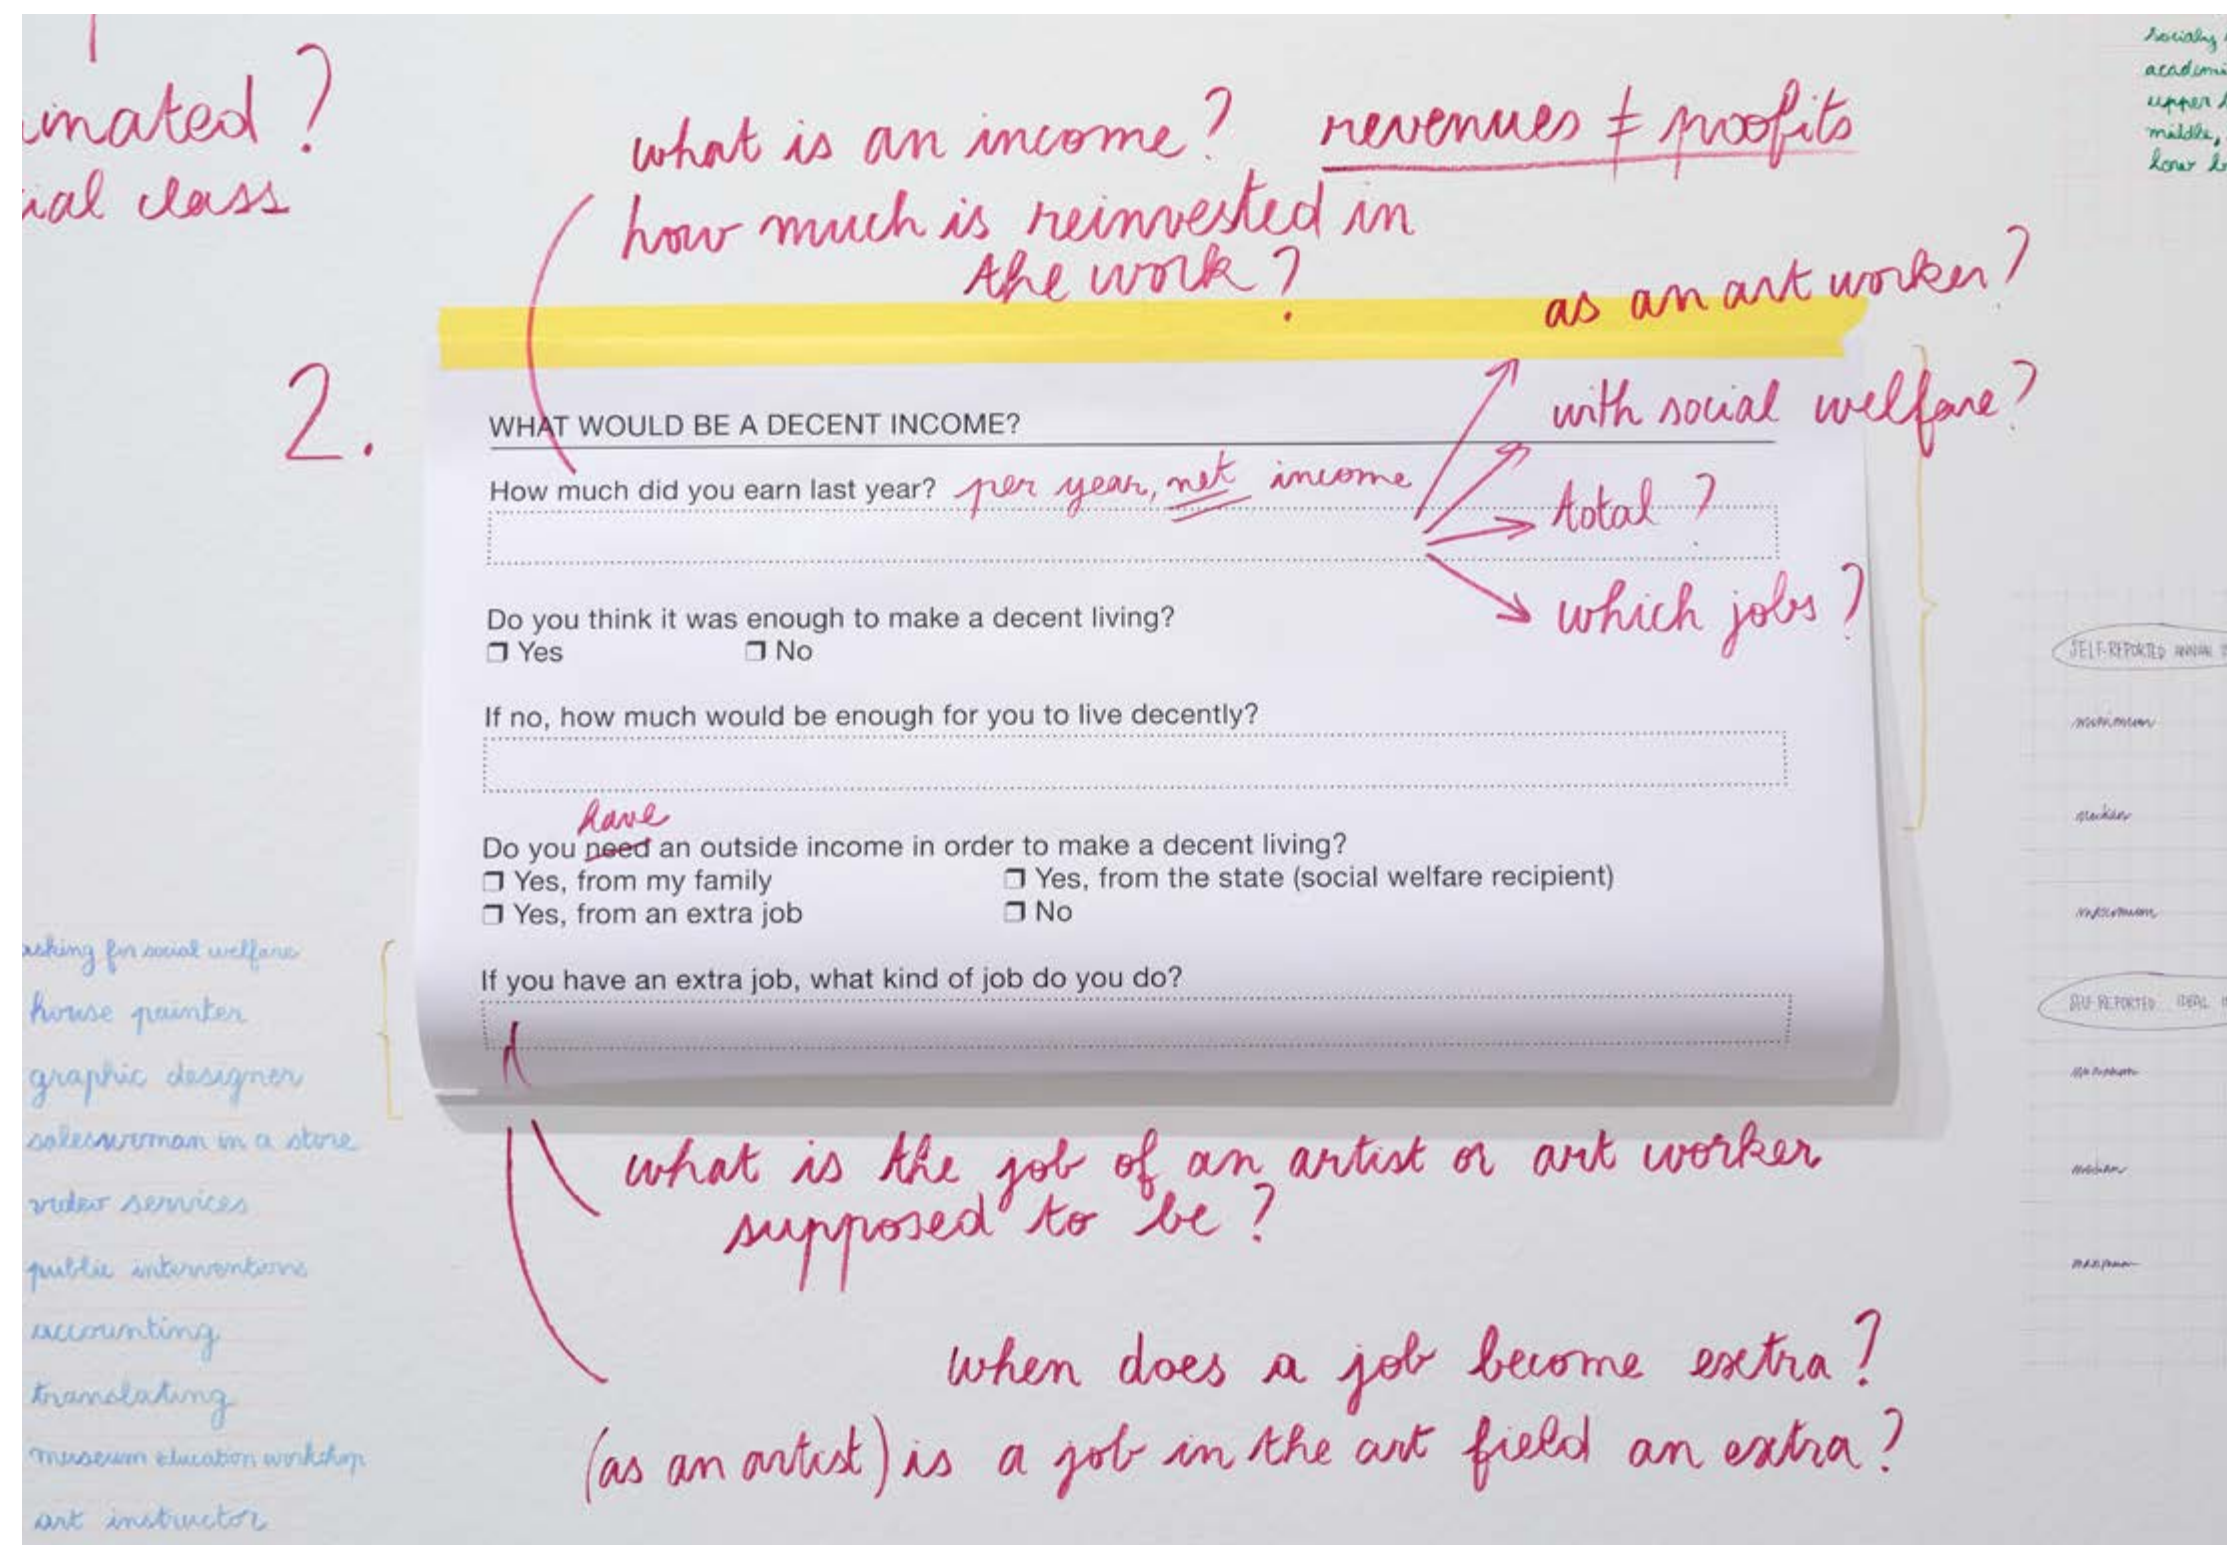 inated?
ial class
what is an income? revenues ≠ profits
how much is reinvested in
the work?
as an art worker?
with social welfare?
total?
which jobs?
2.
WHAT WOULD BE A DECENT INCOME?
How much did you earn last year? per year, net income
Do you think it was enough to make a decent living?
❒ Yes ❒ No
If no, how much would be enough for you to live decently?
have
Do you need an outside income in order to make a decent living?
❒ Yes, from my family ❒ Yes, from the state (social welfare recipient)
❒ Yes, from an extra job ❒ No
If you have an extra job, what kind of job do you do?
what is the job of an artist or art worker
supposed to be?
when does a job become extra?
(as an artist) is a job in the art field an extra?
asking for social welfare
house painter
graphic designer
saleswoman in a store
video services
public interventions
accounting
translating
museum education workshop
art instructor
socially
academi
upper
middle,
lower
SELF-REPORTED ANNUAL
minimum
median
maximum
SELF-REPORTED IDEAL
minimum
median
maximum